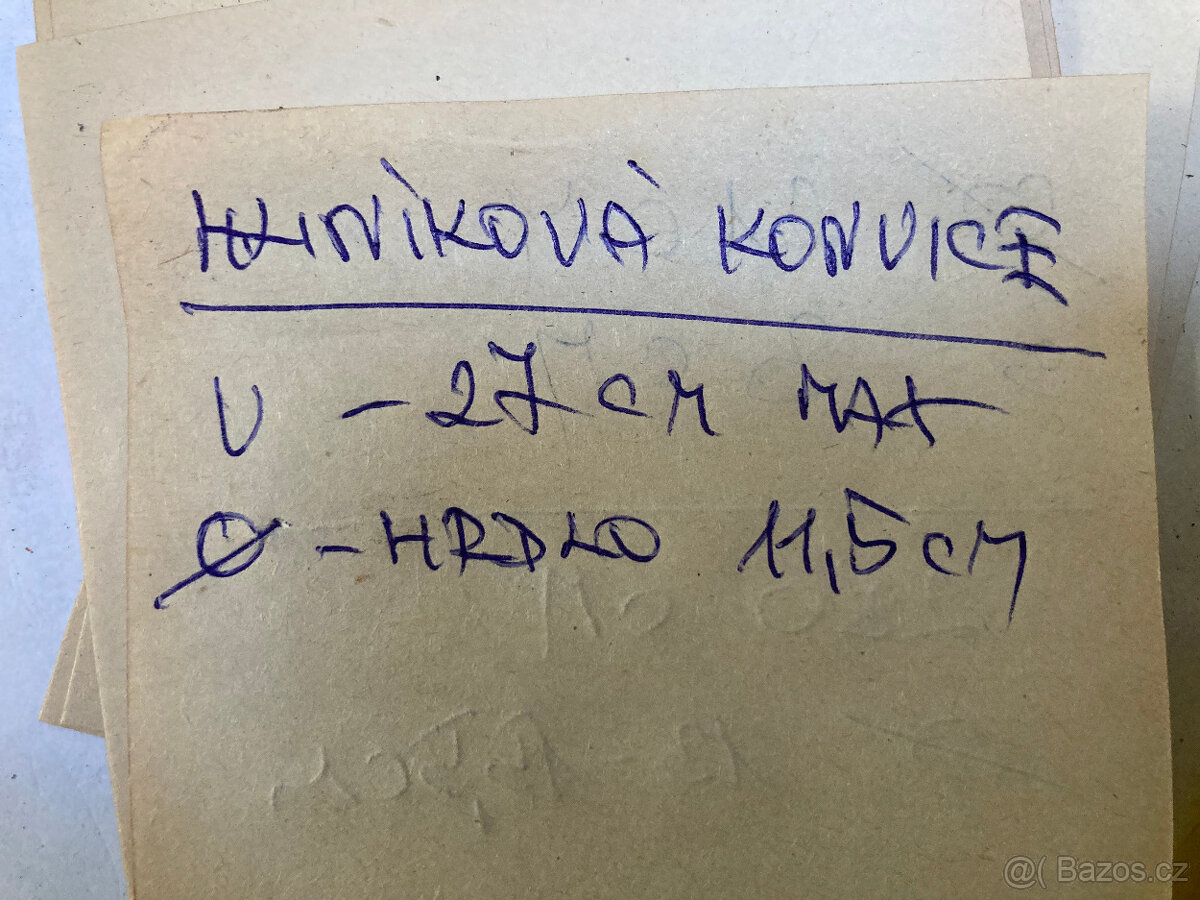 HLINÍKOVÁ KONVICE
V - 27 CM MAX
Ø - HRDLO 11,5 CM
@( Bazos.cz